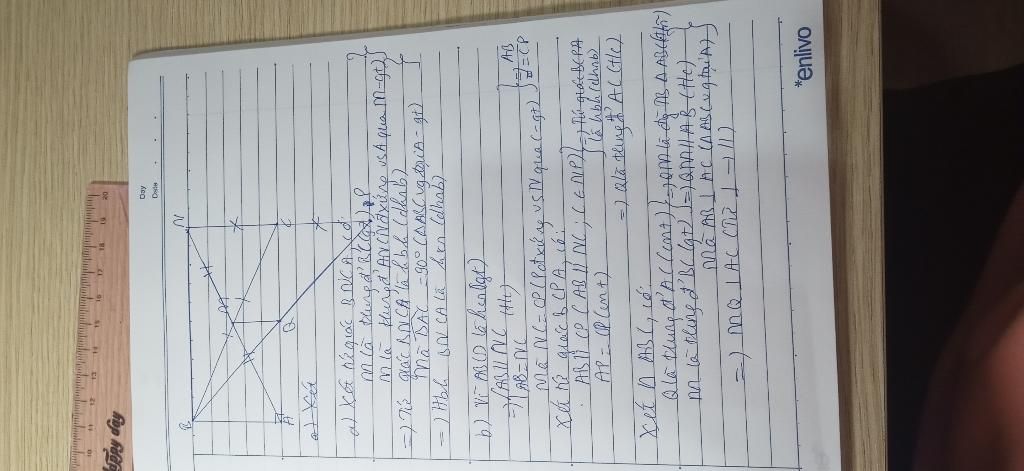 Day
Date
B
N
M
A
Q
C
P
a) Xét
a) Xét tứ giác BNCA, có:
M là trung đ' BC (gt)
M là trung đ' AN (N đ/xứng vs A qua M - gt)
=) Tứ giác BNCA là hbh (dhnb)
Mà BAC = 90° (ΔABC vg tại A - gt)
=) Hbh BNCA là hcn (dhnb)
b) Vì ABCD là hcn (gt)
=) AB // NC (t/c)
AB = NC
Mà NC = CP (P đ/xứng vs N qua C - gt)
=) AB = CP
Xét tứ giác BCPA, có:
AB // CP (AB // NC; C ∈ NP)
AB = CP (cmt)
=) Tứ giác BCPA là hbh (dhnb)
=) Q là trung đ' AC (t/c)
Xét Δ ABC, có:
Q là trung đ' AC (cmt)
M là trung đ' BC (gt)
=) QM là đg TB Δ ABC
=) QM // AB (t/c)
Mà AB ⊥ AC (ΔABC vg tại A)
=) MQ ⊥ AC (Từ ⊥ → //)
*enlivo
happy day
10 11 12 13 14 15 16 17 18 19 20